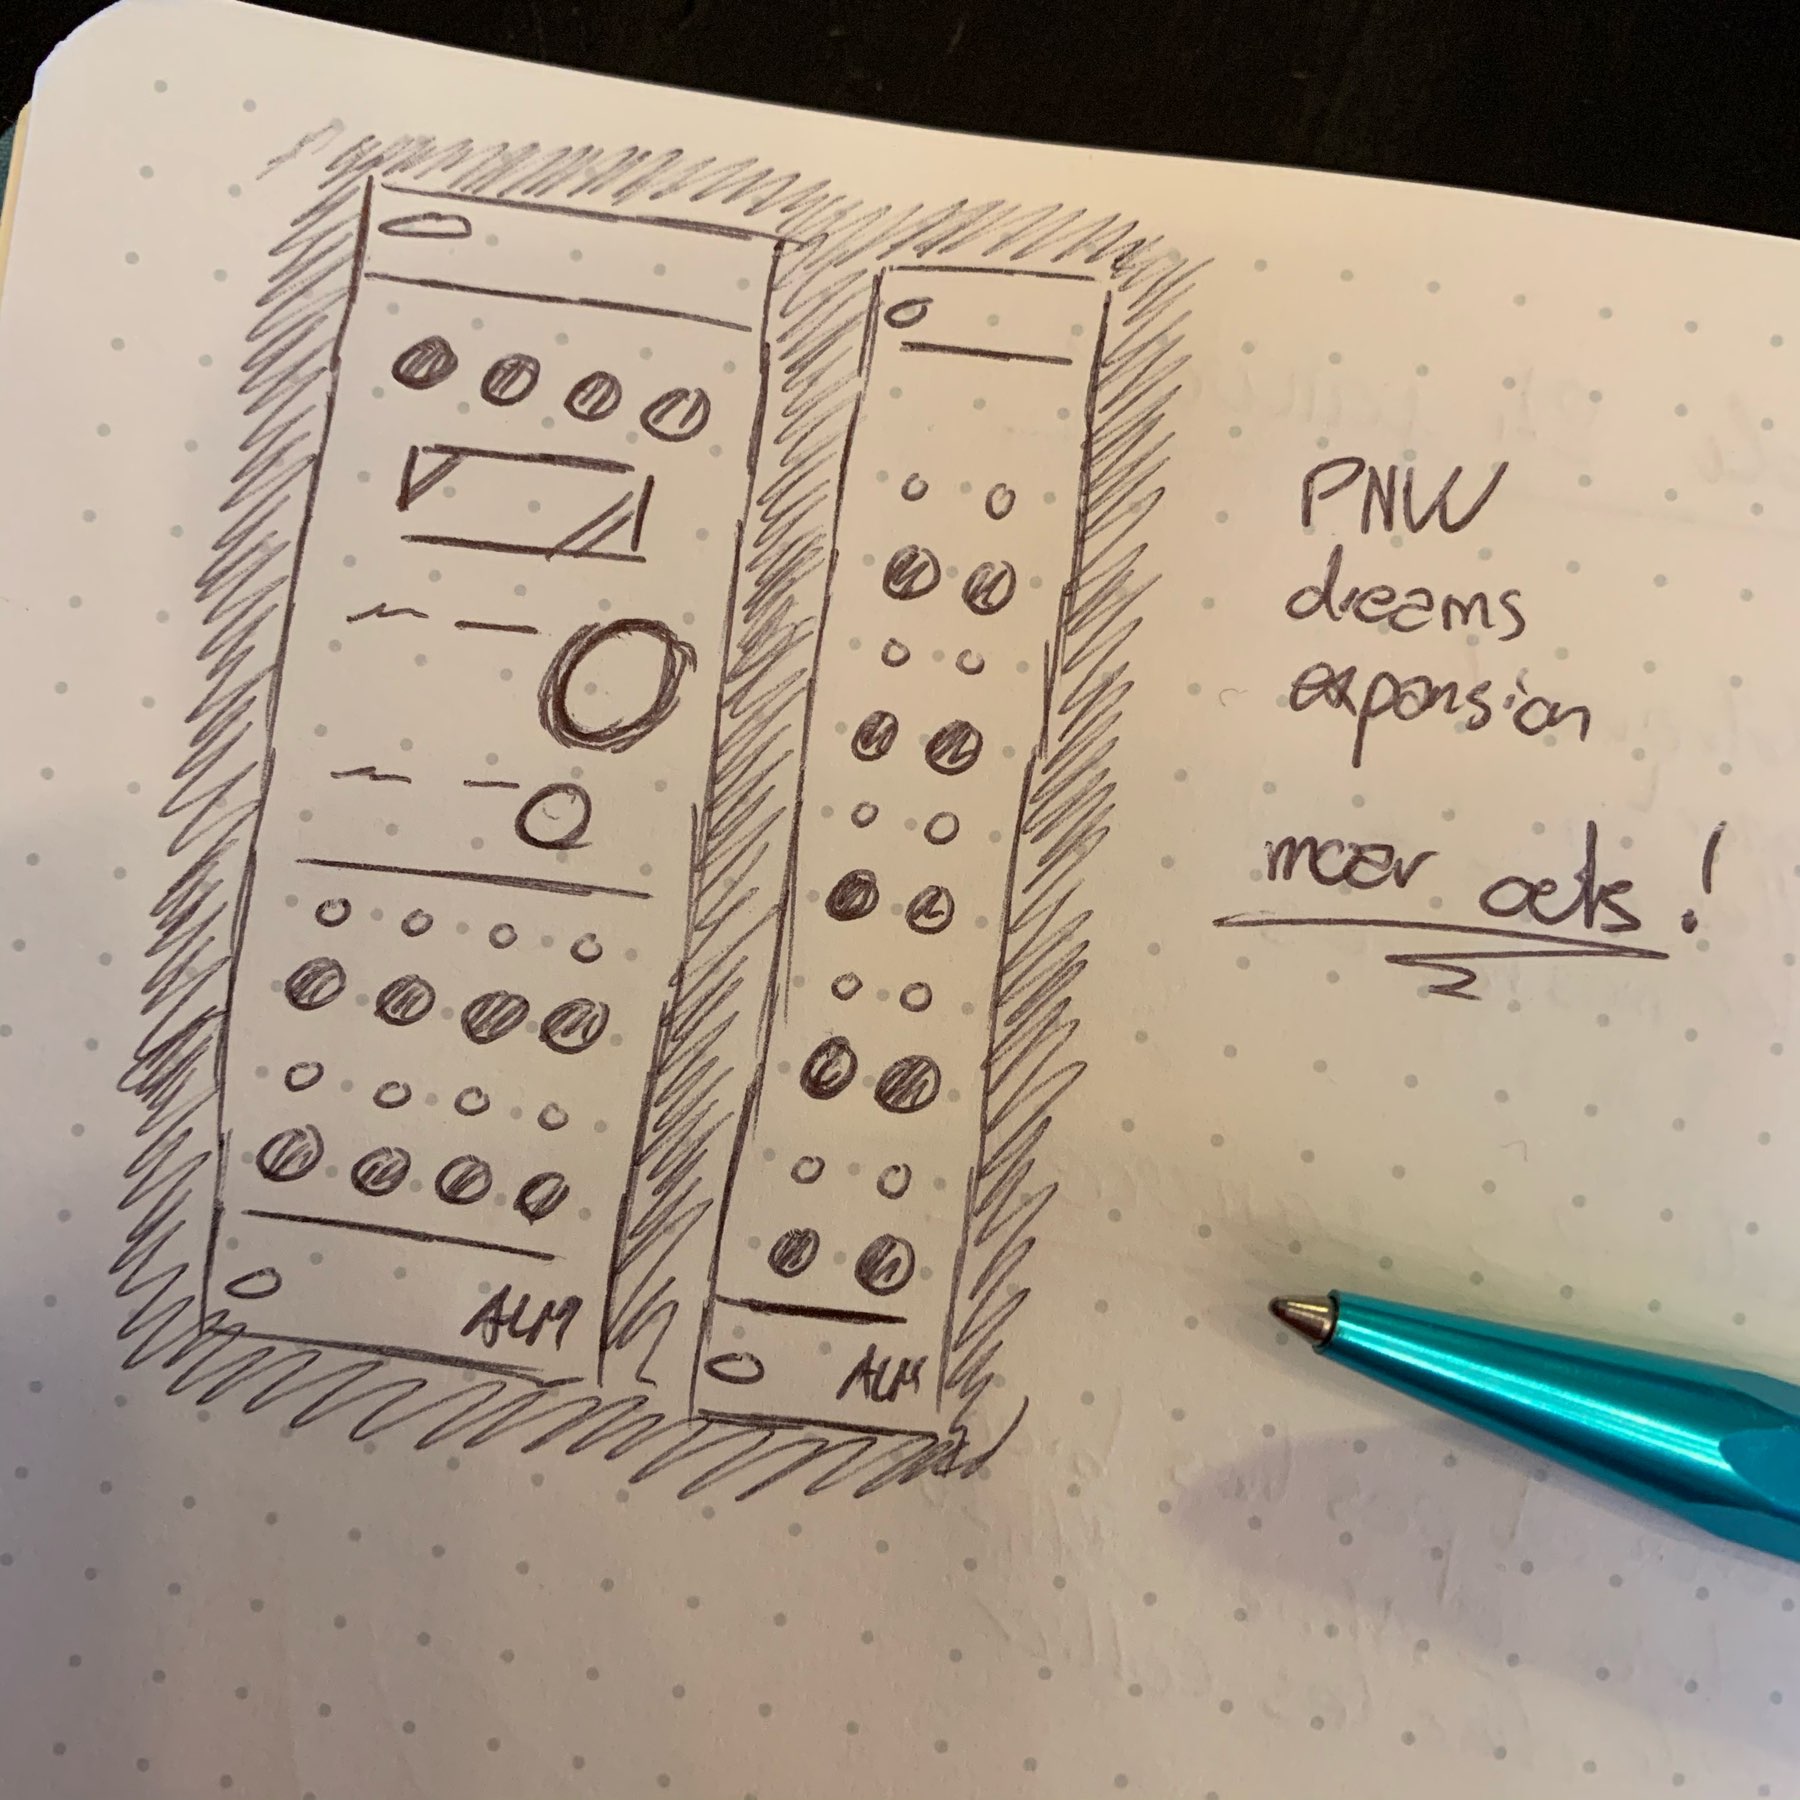 ALM
ALM
PNW
dreams
expansion
moar outs!